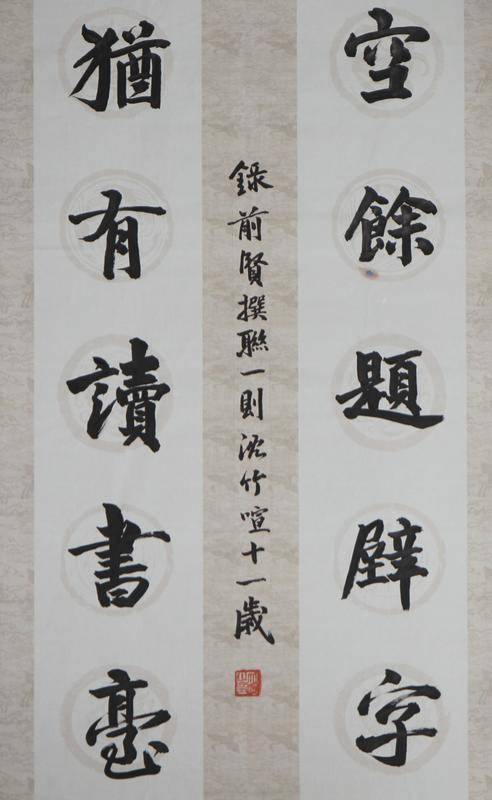 空餘題壁字
猶有讀書臺
錄前賢撰聯一則沈竹喧十一歲